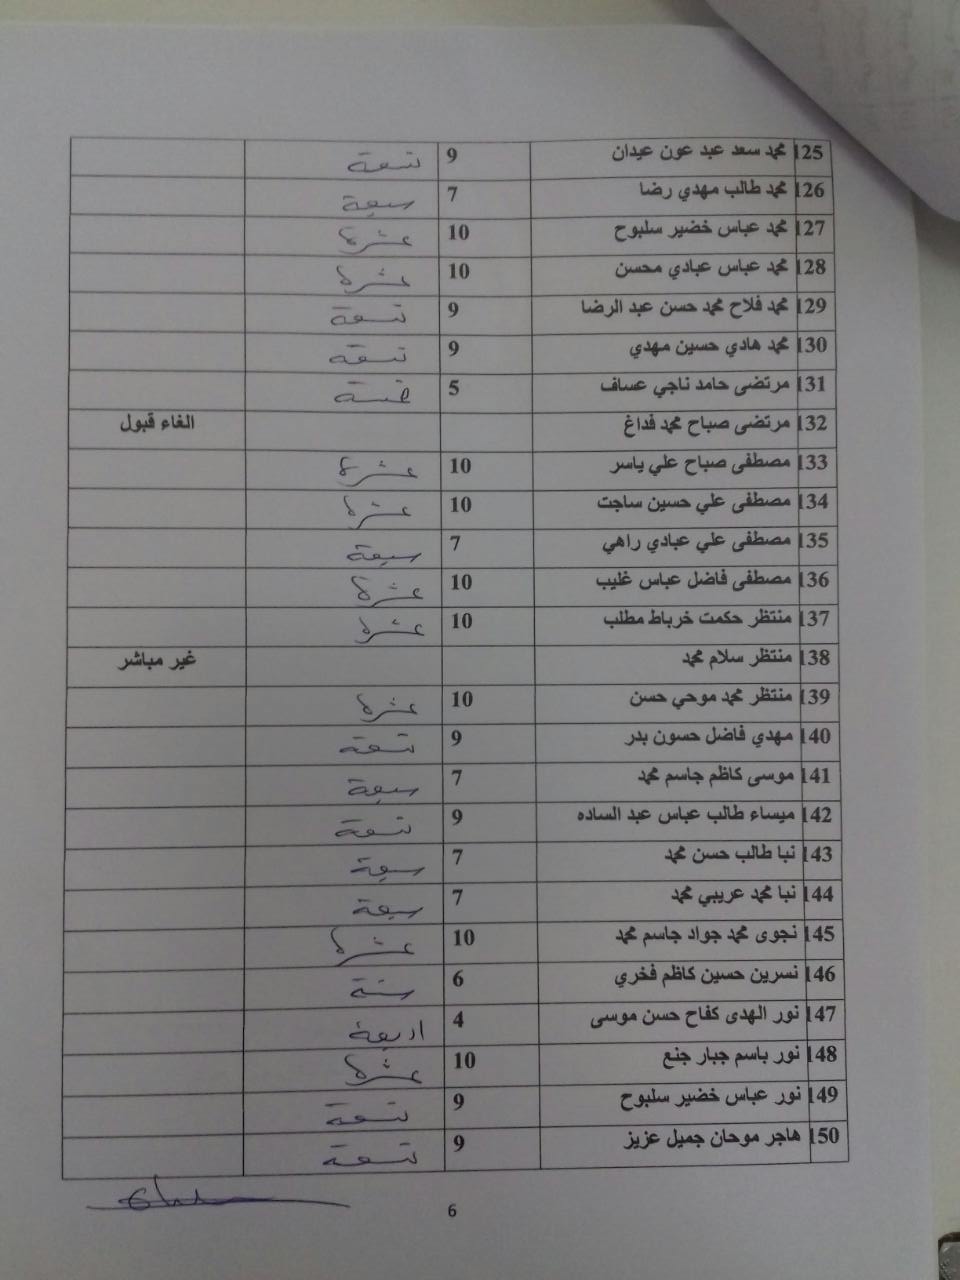 125 محمد سعد عبد عون عيدان 9 تسعة
126 محمد طالب مهدي رضا 7 سبعة
127 محمد عباس خضير سلبوح 10 عشرة
128 محمد عباس عبادي محسن 10 عشرة
129 محمد فلاح محمد حسن عبد الرضا 9 تسعة
130 محمد هادي حسين مهدي 9 تسعة
131 مرتضى حامد ناجي عساف 5 خمسة
132 مرتضى صباح محمد فداغ الغاء قبول
133 مصطفى صباح علي ياسر 10 عشرة
134 مصطفى علي حسين ساجت 10 عشرة
135 مصطفى علي عبادي راهي 7 سبعة
136 مصطفى فاضل عباس غليب 10 عشرة
137 منتظر حكمت خرباط مطلب 10 عشرة
138 منتظر سلام محمد غير مباشر
139 منتظر محمد موحي حسن 10 عشرة
140 مهدي فاضل حسون بدر 9 تسعة
141 موسى كاظم جاسم محمد 7 سبعة
142 ميساء طالب عباس عبد الساده 9 تسعة
143 نبا طالب حسن محمد 7 سبعة
144 نبا محمد عريبي محمد 7 سبعة
145 نجوى محمد جواد جاسم محمد 10 عشرة
146 نسرين حسين كاظم فخري 6 ستة
147 نور الهدى كفاح حسن موسى 4 اربعة
148 نور باسم جبار جنع 10 عشرة
149 نور عباس خضير سلبوح 9 تسعة
150 هاجر موحان جميل عزيز 9 تسعة
6